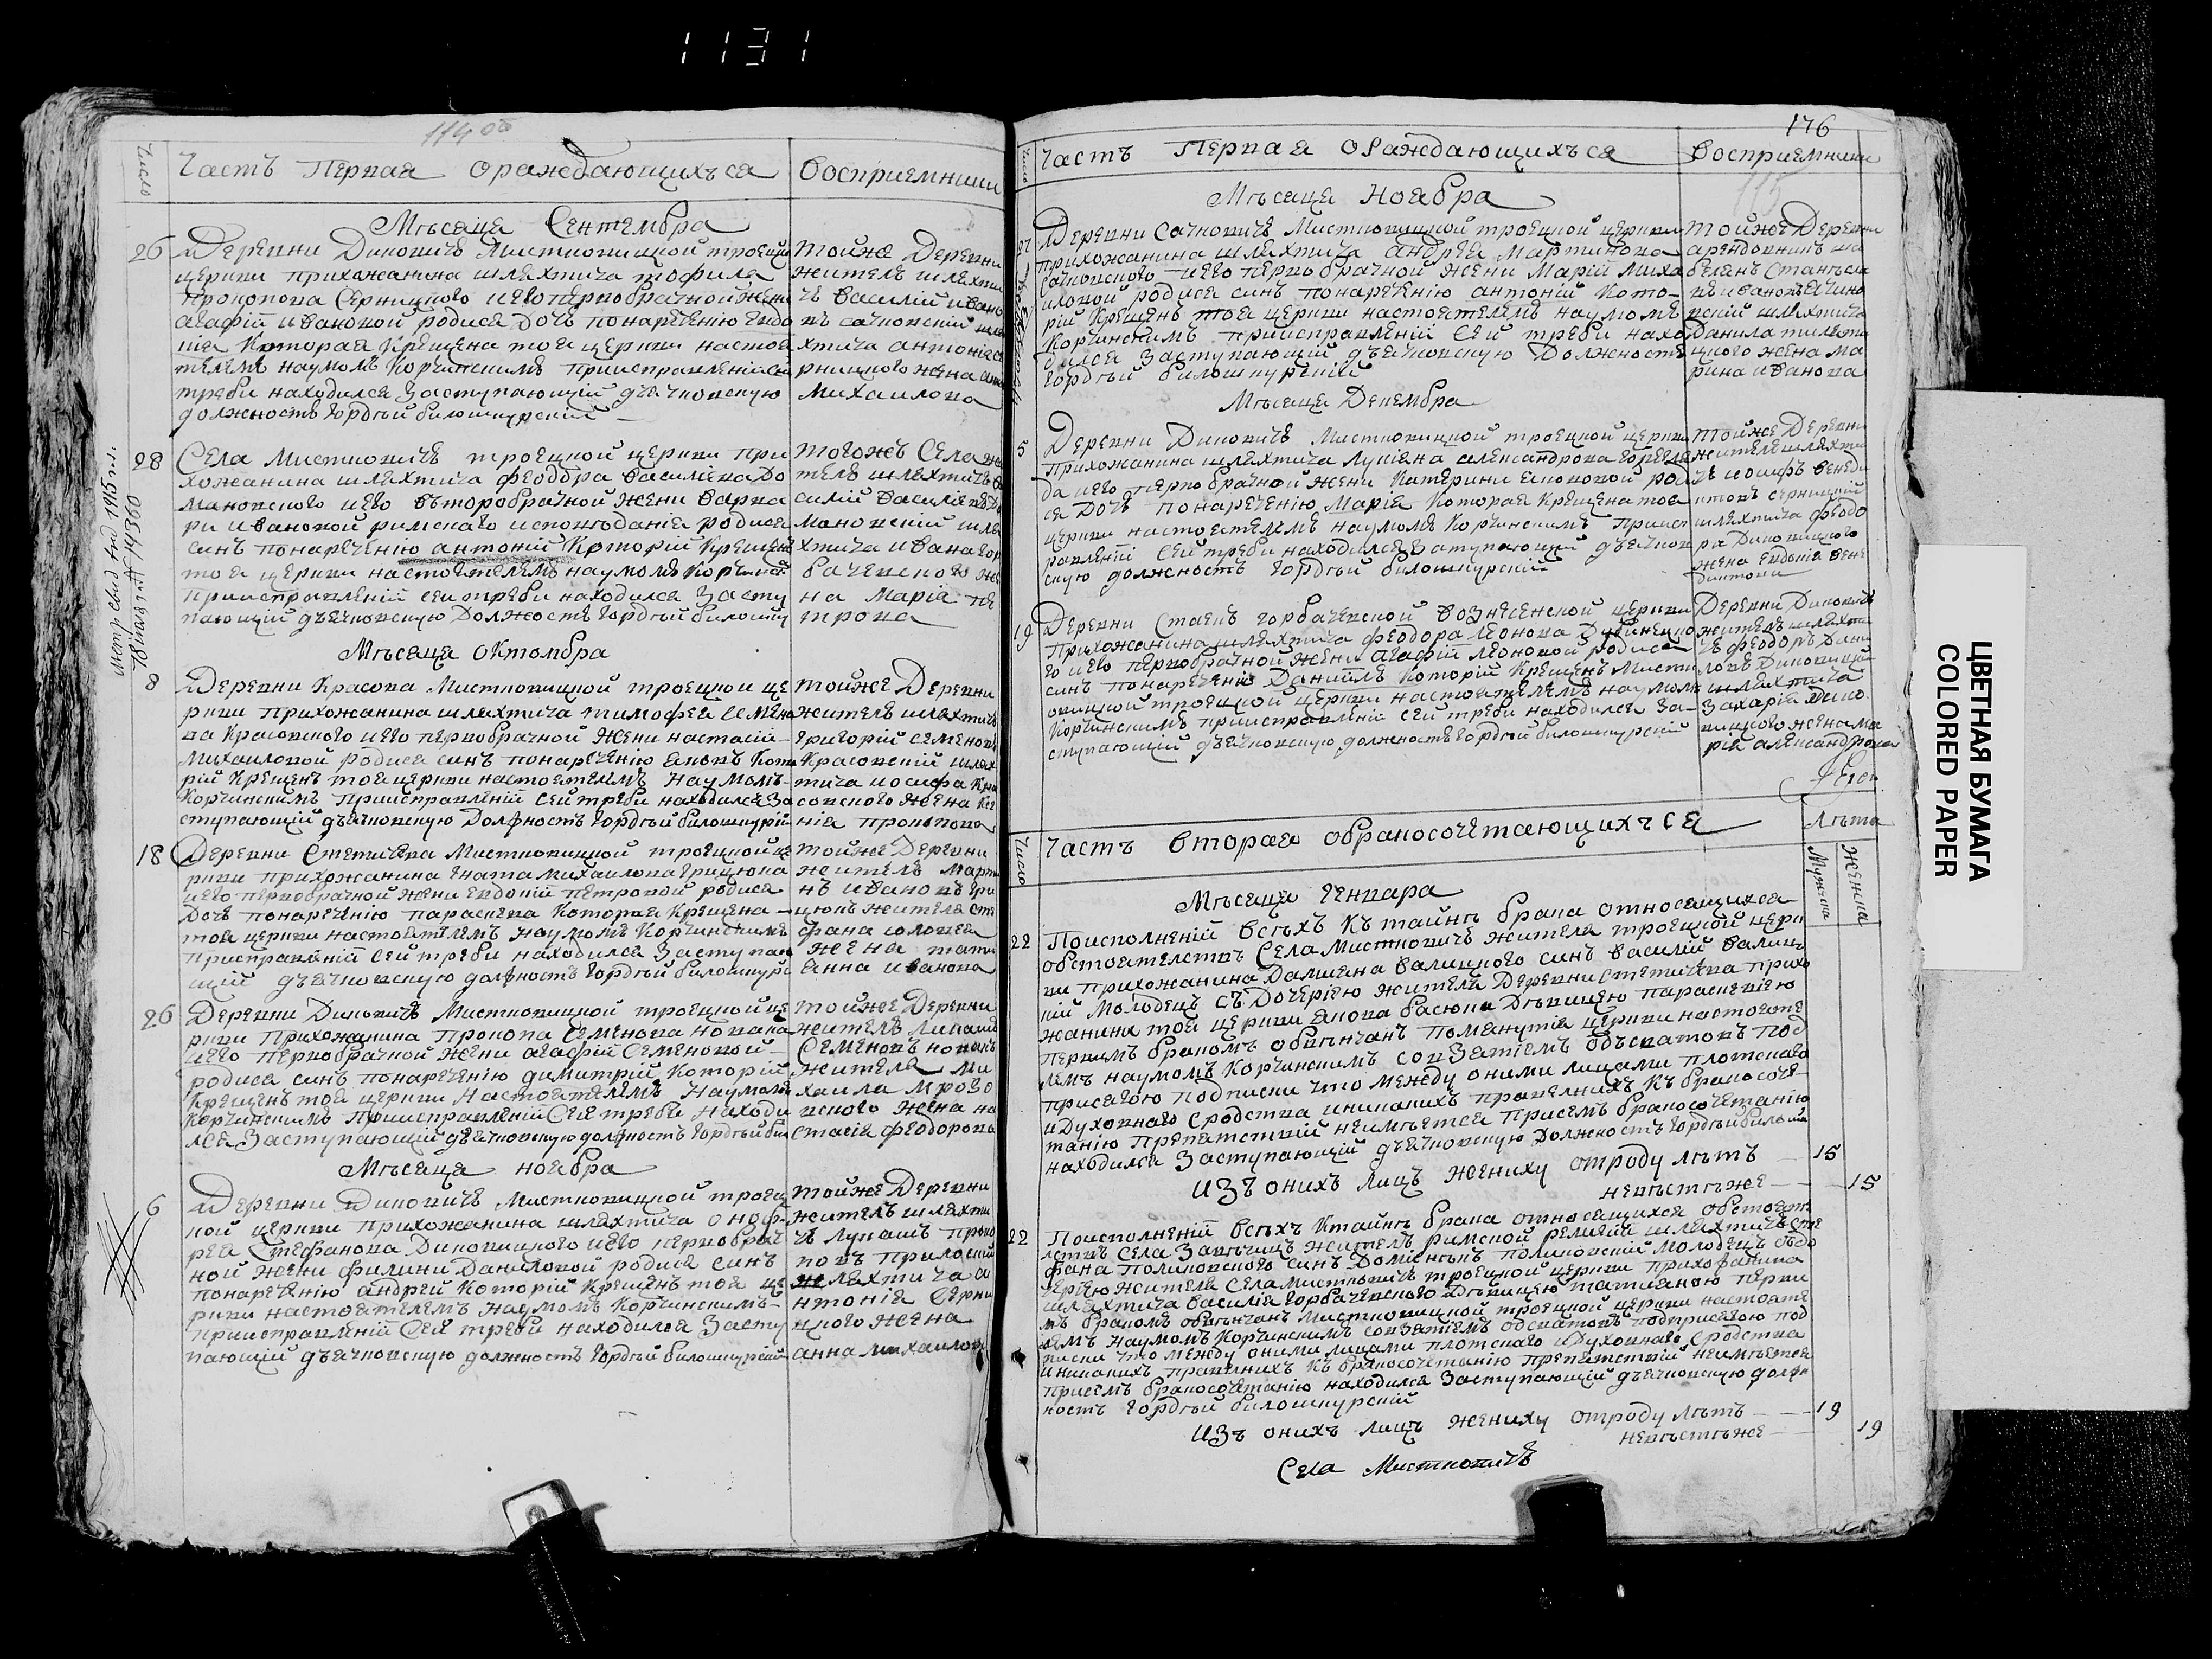 1131
114 об
Число
Часть Первая ораждающихъся
Восприемники
Мѣсяца Сентембра
26
Деревни Диковичъ Мистковицкой троецкой
церкви прихожанина шляхтича тофила
Прокопова Серницкого иего первобрачной жени
агафій ивановой родися дочь понаречению евдо
кія Которая Крещена тоя церкви настоя
телемъ наумомъ Корчинскимъ приисправленій сей
треби находился Заступающій дъячковскую
должность гордѣй билошкурскій
тойже Деревни
житель шляхти
чъ Василій ивано
въ сачковскій шля
хтича антонія се
рницкого жена анна
Михаилова
28
Села Мистковичъ троецкой церкви при
хожанина шляхтича феодора Василиева До
мановского иего второбрачной жени варва
ри ивановой римскаго исповѣданія родися
синъ понаречению антоній Которій Крещенъ
тоя церкви настоятелемъ наумомъ Корчинск
приисправленій сей треби находился Засту
пающій дъячковскую Должность гордѣй билошку
тогожъ Села жи
тель шляхтичъ ва
силій Василіевъ До
мановскій шля
хтича ивана гор
бачевского же
на Марія пе
трова
Мѣсяца Октомбра
8
Деревни Красова Мистковицкой троецкой це
ркви прихожанина шляхтича тимофея семено
ва Красовского иего первобрачной жени настасій
Михаиловой родися синъ понаречению яковъ Кото
рій Крещенъ тоя церкви настоятелемъ наумомъ
Корчинскимъ приисправленій сей треби находился За
ступающій дъячковскую Должность гордѣй билошкурскій
тойже Деревни
житель шляхтичъ
григорій семеновъ
Красовскій шлях
тича иосифа Кра
совского жена Ксе
нія прокопова
18
Деревни Степичева Мистковицкой троецкой це
ркви прихожанина гната михаилова грицюка
иего первобрачной жени евдокій петровой родися
дочь понаречению параскева Которая Крещена
тоя церкви настоятелемъ наумомъ Корчинскимъ
Присправленій сей треби находился Заступаю
щій дъячковскую должность гордѣй билошкурс
тойже Деревни
житель Марти
нъ ивановъ гри
цюкъ жителя сте
фана
жена тати
анна иванова
26
Деревни Диковичъ Мистковицкой троецкой це
ркви Прихожанина Прокопа семенова новака
иего первобрачной жени агафій семеновой
родися синъ понаречению димитрій Которій
Крещенъ тоя церкви Настоятелемъ Наумомъ
Корчинскимъ Приисправленій Сей треби находи
лся Заступающій дъячковскую должность гордѣй бил
тойже Деревни
житель
семеновъ новакъ
жителя ми
хаила
вского жена на
стасія феодорова
Мѣсяца ноября
6
Деревни Диковичъ Мистковицкой троец
кой церкви прихожанина шляхтича оноф
рея Стефанова Диковицкого иего первобрач
ной жени филини Даниловой родися синъ
понаречению андрей Которій Крещенъ тоя це
ркви настоятелемъ наумомъ Корчинскимъ
приисправленій Сей треби находился Засту
пающій дъячковскую должность гордѣй билошкурскій
тойже Деревни
житель шляхти
чъ Лукашъ проко
повъ
шляхтича а
нтонія серни
цкого жена
анна михаилова
176
115
Часть Первая Ораждающихъся
Восприемники
Мѣсяца Ноября
Деревни Сачковичъ Мистковицкой троецкой церкви
прихожанина шляхтича андрея Мартинова
сачковского иего первобрачной жени Марій Миха
иловой родися синъ понаречению антоній Кото
рій Крещенъ тоя церкви настоятелемъ наумомъ
Корчинскимъ приисправленій Сей треби нахо
дился Заступающій дъячковскую Должность
гордѣй билошкурскій
тойже Деревни
арендовникъ
шляхтича
Данила
цкого жена ма
рина иванова
Мѣсяца Декембра
5
Деревни Диковичъ Мистковицкой троецкой церкви
Прихожанина шляхтича Лукіяна александрова
да иего первобрачной жени Катерини яковной роди
ся Дочь понаречению Марія Которая Крещена тоя
церкви настоятелемъ наумомъ Корчинскимъ приисп
равленій сей треби находился Заступающій дъячков
скую должность гордѣй билошкурскій
тойже Деревни
житель шляхти
чъ иосифъ Венеди
ктовъ серницкій
шляхтича феодо
ра Диковицкого
жена евдокія Вене
диктова
19
Деревни Ставъ горбачевской Вознесенской церкви
Прихожанина шляхтича Феодора Леонова Дубинецко
го иего первобрачной жени агафій Леоновой родися
синъ понаречению Даниилъ Которій Крещенъ Мистк
овицкой троецкой церкви настоятелемъ наумомъ
Корчинскимъ приисправленій сей треби находился За
ступающій дъячковскую должность гордѣй билошкурскій
Деревни Диковичъ
житель шляхти
чъ феодоръ Дани
ловъ Диковицкій
шляхтича
Захарія Дико
вицкого жена ма
рія александрова
Число
Часть Вторая обракосочетающихъся
Лѣта
Мужска
Женска
Мѣсяца Генвара
22
Поисполненій всѣхъ Къ тайнѣ брака относящихся
обстоятелствъ Села Мистковичъ жителя троецкой церк
ви прихожанина Дамияна Валицкого синъ Василій Валиц
кій Молодецъ съ Дочерією жителя Деревни Степичева прихо
жанина той церкви якова басюка Дѣвицею параскевією
первимъ бракомъ обвѣнчанъ Помянутія церкви настояте
лемъ наумомъ Корчинскимъ совзятіемъ обисковъ под
присягою подписки что между оними лицами плотскаго
идуховнаго сродства иникакихъ правилнихъ къ бракосоче
танію Препятствій неимѣется присемъ бракосочетанію
находился Заступающій дъячковскую Должность гордѣй билошк
Изъ онихъ лицъ жениху отроду лѣтъ 15
невѣстѣже 15
22
Поисполненій всѣхъ Ктайнѣ брака относящихся обстоят
лствъ Села Завѣчицъ жителя римской релѣгій шляхтича сте
фана Поликовского синъ Доминѣкъ Поликовскій Молодецъ сдо
черію жителя Села Мистковичъ троецкой церкви прихожанина
шляхтича Василія горбачевского Дѣвицею татияною перви
мъ бракомъ обвѣнчанъ Мистковицкой троецкой церкви настояте
лемъ наумомъ Корчинскимъ совзятіемъ обисковъ подприсягою под
писки что между оними лицами плотскаго идуховнаго сродства
иникакихъ правилнихъ Къ бракосочетанію препятствій неимѣется
присемъ бракосочетанію находился Заступающій дъячковскую долж
ность гордѣй билошкурскій
Изъ онихъ лицъ жениху отроду лѣтъ 19
невѣстѣже 19
Села Мистковичъ
ЦВЕТНАЯ БУМАГА
COLORED PAPER